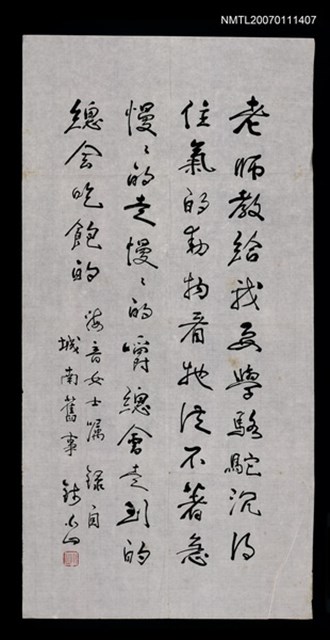 NMTL20070111407
老師教給我要學駱駝沉得
住氣的動物看牠從不着急
慢慢的走慢慢的嚼總會走到的
總会吃飽的
海音女士嘱 録自
城南舊事